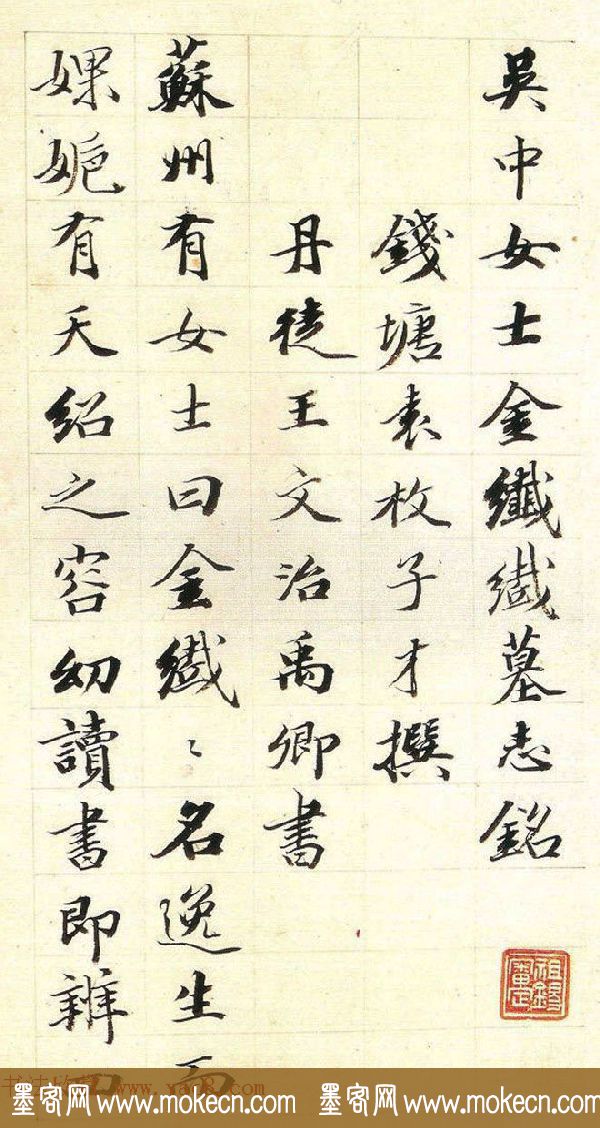 吳中女士金纖纖墓志銘
錢塘袁枚子才撰
丹徒王文治禹卿書
蘇州有女士曰金纖〻名逸生而
婐㛂有天紹之容幼讀書即辨
墨客网 www.mokecn.com 墨客网 www.mokecn.com